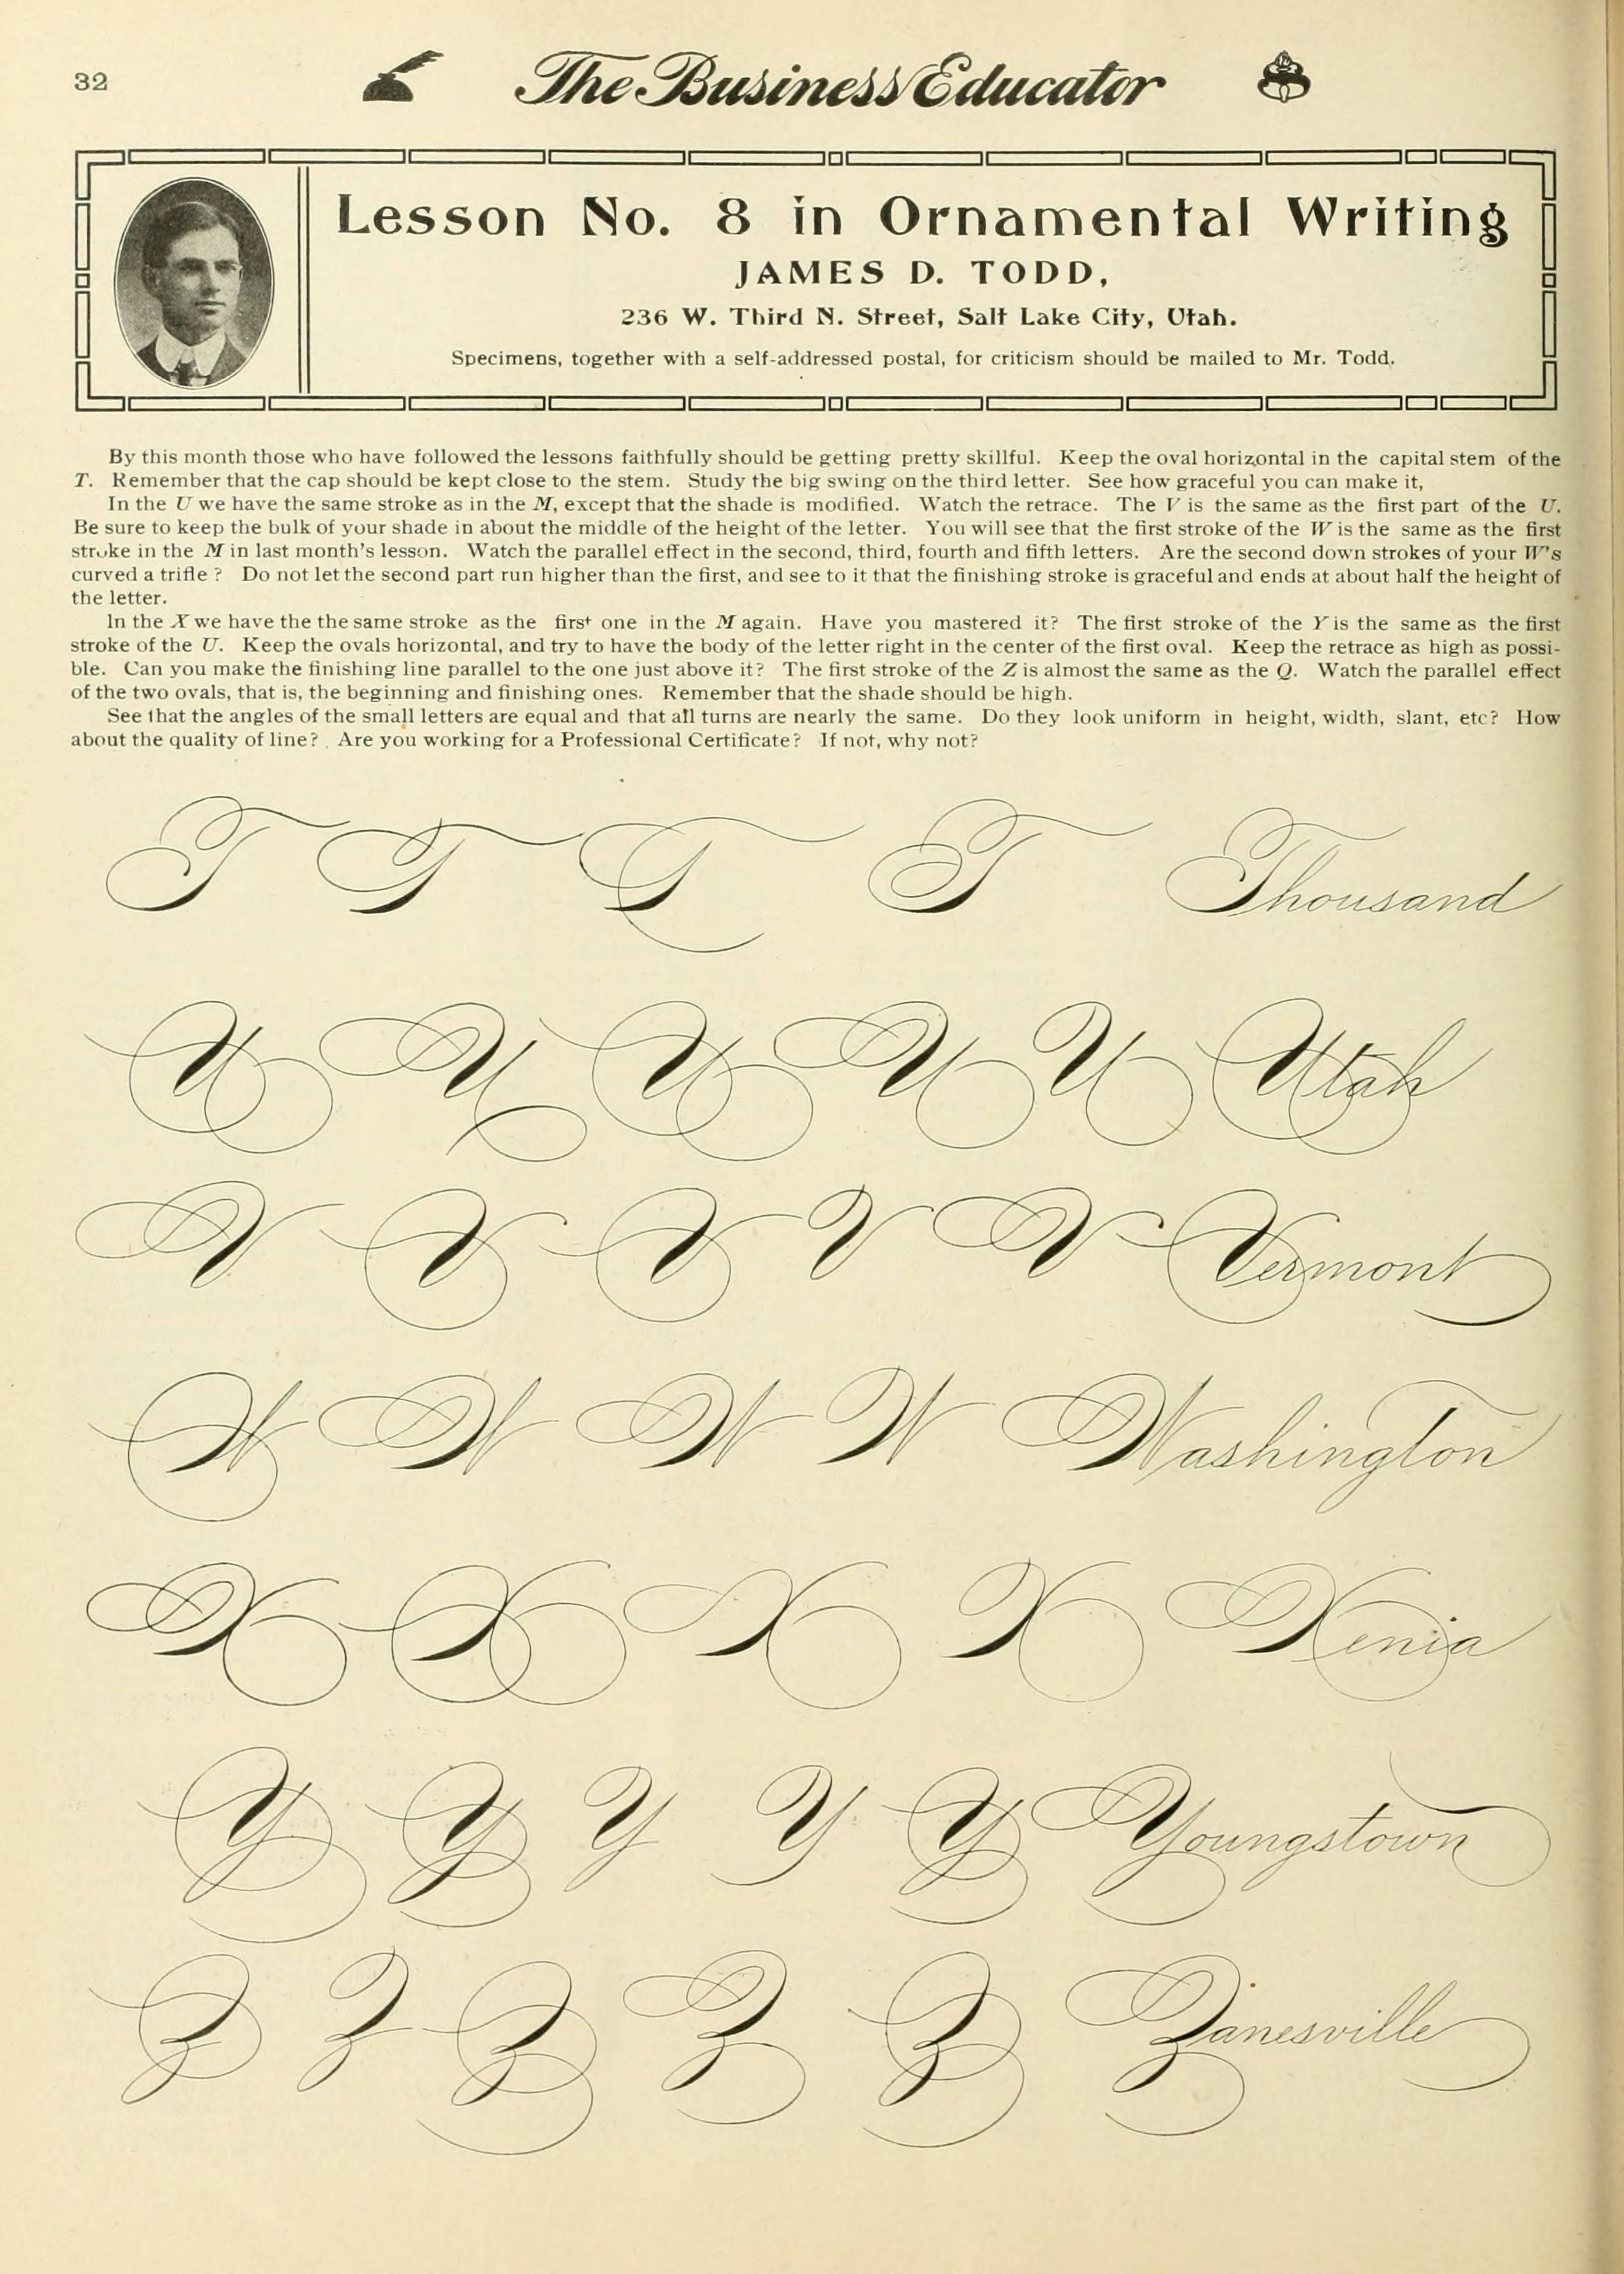 32
The Business Educator
Lesson No. 8 in Ornamental Writing
JAMES D. TODD,
236 W. Third N. Street, Salt Lake City, Utah.
Specimens, together with a self-addressed postal, for criticism should be mailed to Mr. Todd.
By this month those who have followed the lessons faithfully should be getting pretty skillful. Keep the oval horizontal in the capital stem of the
T. Remember that the cap should be kept close to the stem. Study the big swing on the third letter. See how graceful you can make it,
In the U we have the same stroke as in the M, except that the shade is modified. Watch the retrace. The V is the same as the first part of the U.
Be sure to keep the bulk of your shade in about the middle of the height of the letter. You will see that the first stroke of the W is the same as the first
stroke in the M in last month's lesson. Watch the parallel effect in the second, third, fourth and fifth letters. Are the second down strokes of your W's
curved a trifle? Do not let the second part run higher than the first, and see to it that the finishing stroke is graceful and ends at about half the height of
the letter.
In the X we have the the same stroke as the first one in the M again. Have you mastered it? The first stroke of the Y is the same as the first
stroke of the U. Keep the ovals horizontal, and try to have the body of the letter right in the center of the first oval. Keep the retrace as high as possi-
ble. Can you make the finishing line parallel to the one just above it? The first stroke of the Z is almost the same as the Q. Watch the parallel effect
of the two ovals, that is, the beginning and finishing ones. Remember that the shade should be high.
See that the angles of the small letters are equal and that all turns are nearly the same. Do they look uniform in height, width, slant, etc? How
about the quality of line? Are you working for a Professional Certificate? If not, why not?
T T T T Thousand
U U U U U Utah
V V V V V Vermont
W W W W Washington
X X X X Xenia
Y Y Y Y Y Youngstown
Z Z Z Z Z Zanesville